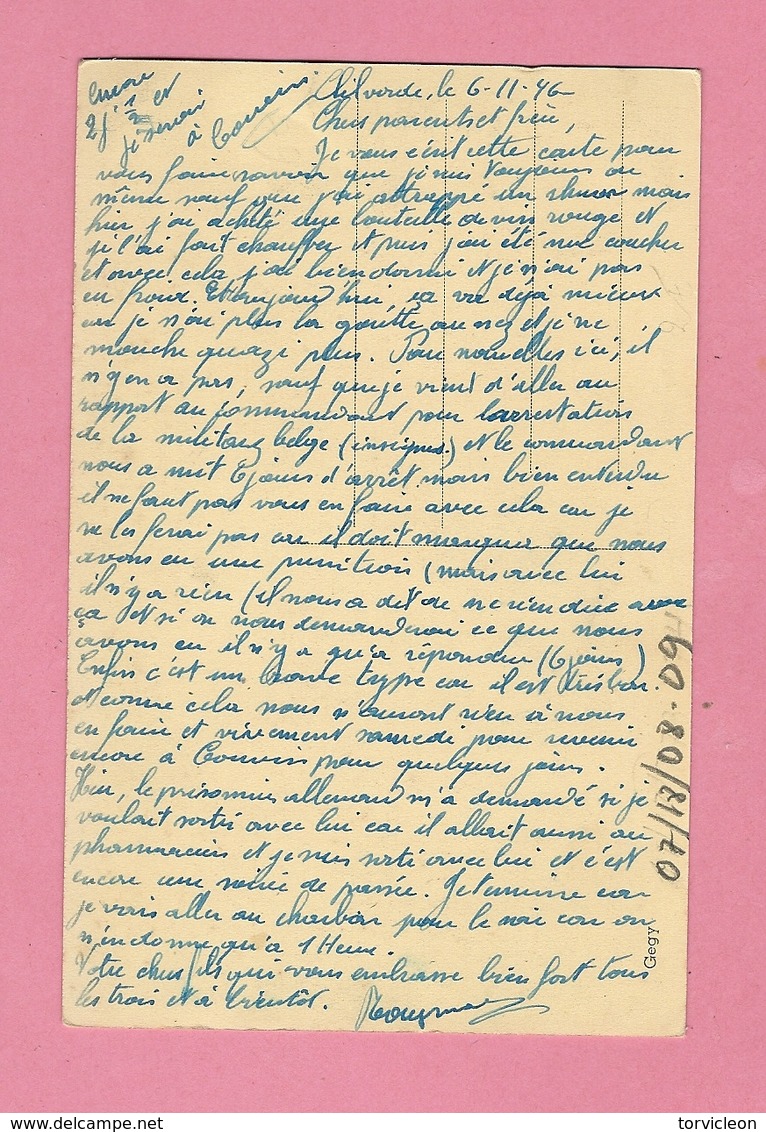 encore
2 j 1/2 et
je serai
à Couvin
Vilvorde, le 6-11-46
Chers parents et frère,
Je vous écrit cette carte pour
vous faire savoir que je suis toujours au
même sauf que j'ai attrappé un rhume mais
hier j'ai acheté une bouteille de vin rouge et
je l'ai fait chauffer et puis j'ai été me coucher
et avec cela j'ai bien dormi et je n'ai pas
eu froid. Et aujourd'hui, ça va déjà mieux
car je n'ai plus la goutte au nez et je ne
mouche quazi plus. Pour nouvelles ici, il
n'y en a pas, sauf que je vient d'aller au
rapport au commandant pour l'arrestation
de la military belge (insignes) et le commandant
nous a mit 6 jours d'arrêt mais bien entendu
il ne faut pas vous en faire avec cela car je
ne les ferai pas car il doit marquer que nous
avons eu une punition (mais avec lui
il n'y a rien (il nous a dit de ne rien dire avec
ça et si on nous demanderai ce que nous
avons eu il n'y a qu'à répondre (6 jours)
Enfin c'est un brave type car il est très bon.
Et comme cela nous n'auront rien à nous
en faire et vivement samedi pour revenir
encore à Couvin pour quelques jours.
Hier, le prisonnier allemand m'a demandé si je
voulait sortir avec lui car il allait aussi au
pharmacien et je suis sorti avec lui et c'est
encore une soirée de passée. Je termine car
je vais aller au charbon pour le soir car on
n'en donne qu'à 1 Heure.
Votre cher fils qui vous embrasse bien fort tous
les trois et à bientôt. Raymond
07/18/08-09
Gegy
delcampe.net
torvicleon